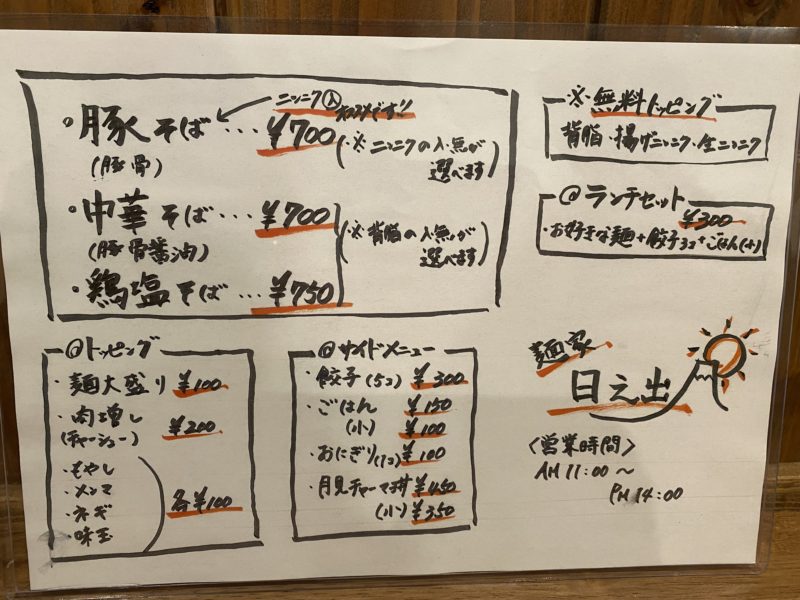 ニンニク入 オススメです!!
・豚そば…¥700
(豚骨)
(※ニンニクの入・無が
選べます)
・中華そば…¥700
(豚骨醤油)
・鶏塩そば…¥750
(※背脂の入・無が
選べます)
※無料トッピング
背脂・揚げニンニク・生ニンニク
@ランチセット
¥300
・お好きな麺+餃子3コ+ごはん(小)
@トッピング
・麺大盛り ¥100
・肉増し
(チャーシュー) ¥200
・もやし
・メンマ
・ネギ
・味玉
各¥100
@サイドメニュー
・餃子(5コ) ¥300
・ごはん ¥150
(小) ¥100
・おにぎり(1コ) ¥100
・月見チャーマヨ丼 ¥450
(小) ¥350
麺家
日之出
〈営業時間〉
AM 11:00 〜
PM 14:00